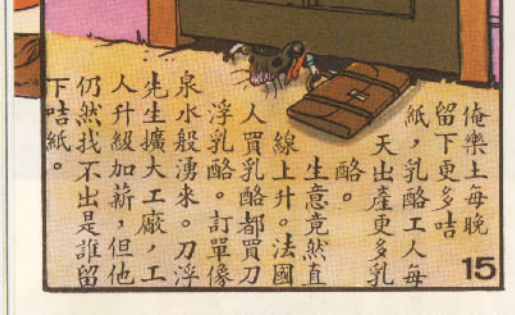 俺樂土每晚
留下更多咭
紙，乳酪工人每
天出產更多乳
酪。
生意竟然直
線上升。法國
人買乳酪都買刀
浮乳酪。訂單像
泉水般湧來。刀浮
先生擴大工廠，工
人升級加薪，但他
仍然找不出是誰留
下咭紙。
15